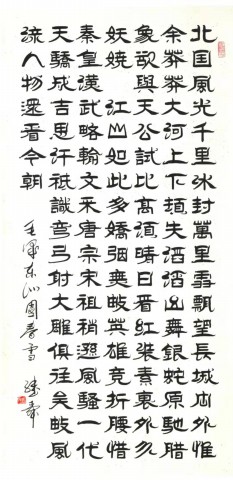 北国風光千里冰封萬里雪飄望長城内外惟
余莽莽大河上下頓失滔滔山舞銀蛇原馳腊
象欲與天公試比高須晴日看紅裝素裹分外
妖嬈 江山如此多嬌引無數英雄竞折腰惜
秦皇漢武略輸文采唐宗宋祖稍遜風騷一代
天驕成吉思汗祗識彎弓射大雕俱往矣數風
流人物還看今朝
毛澤東沁園春雪